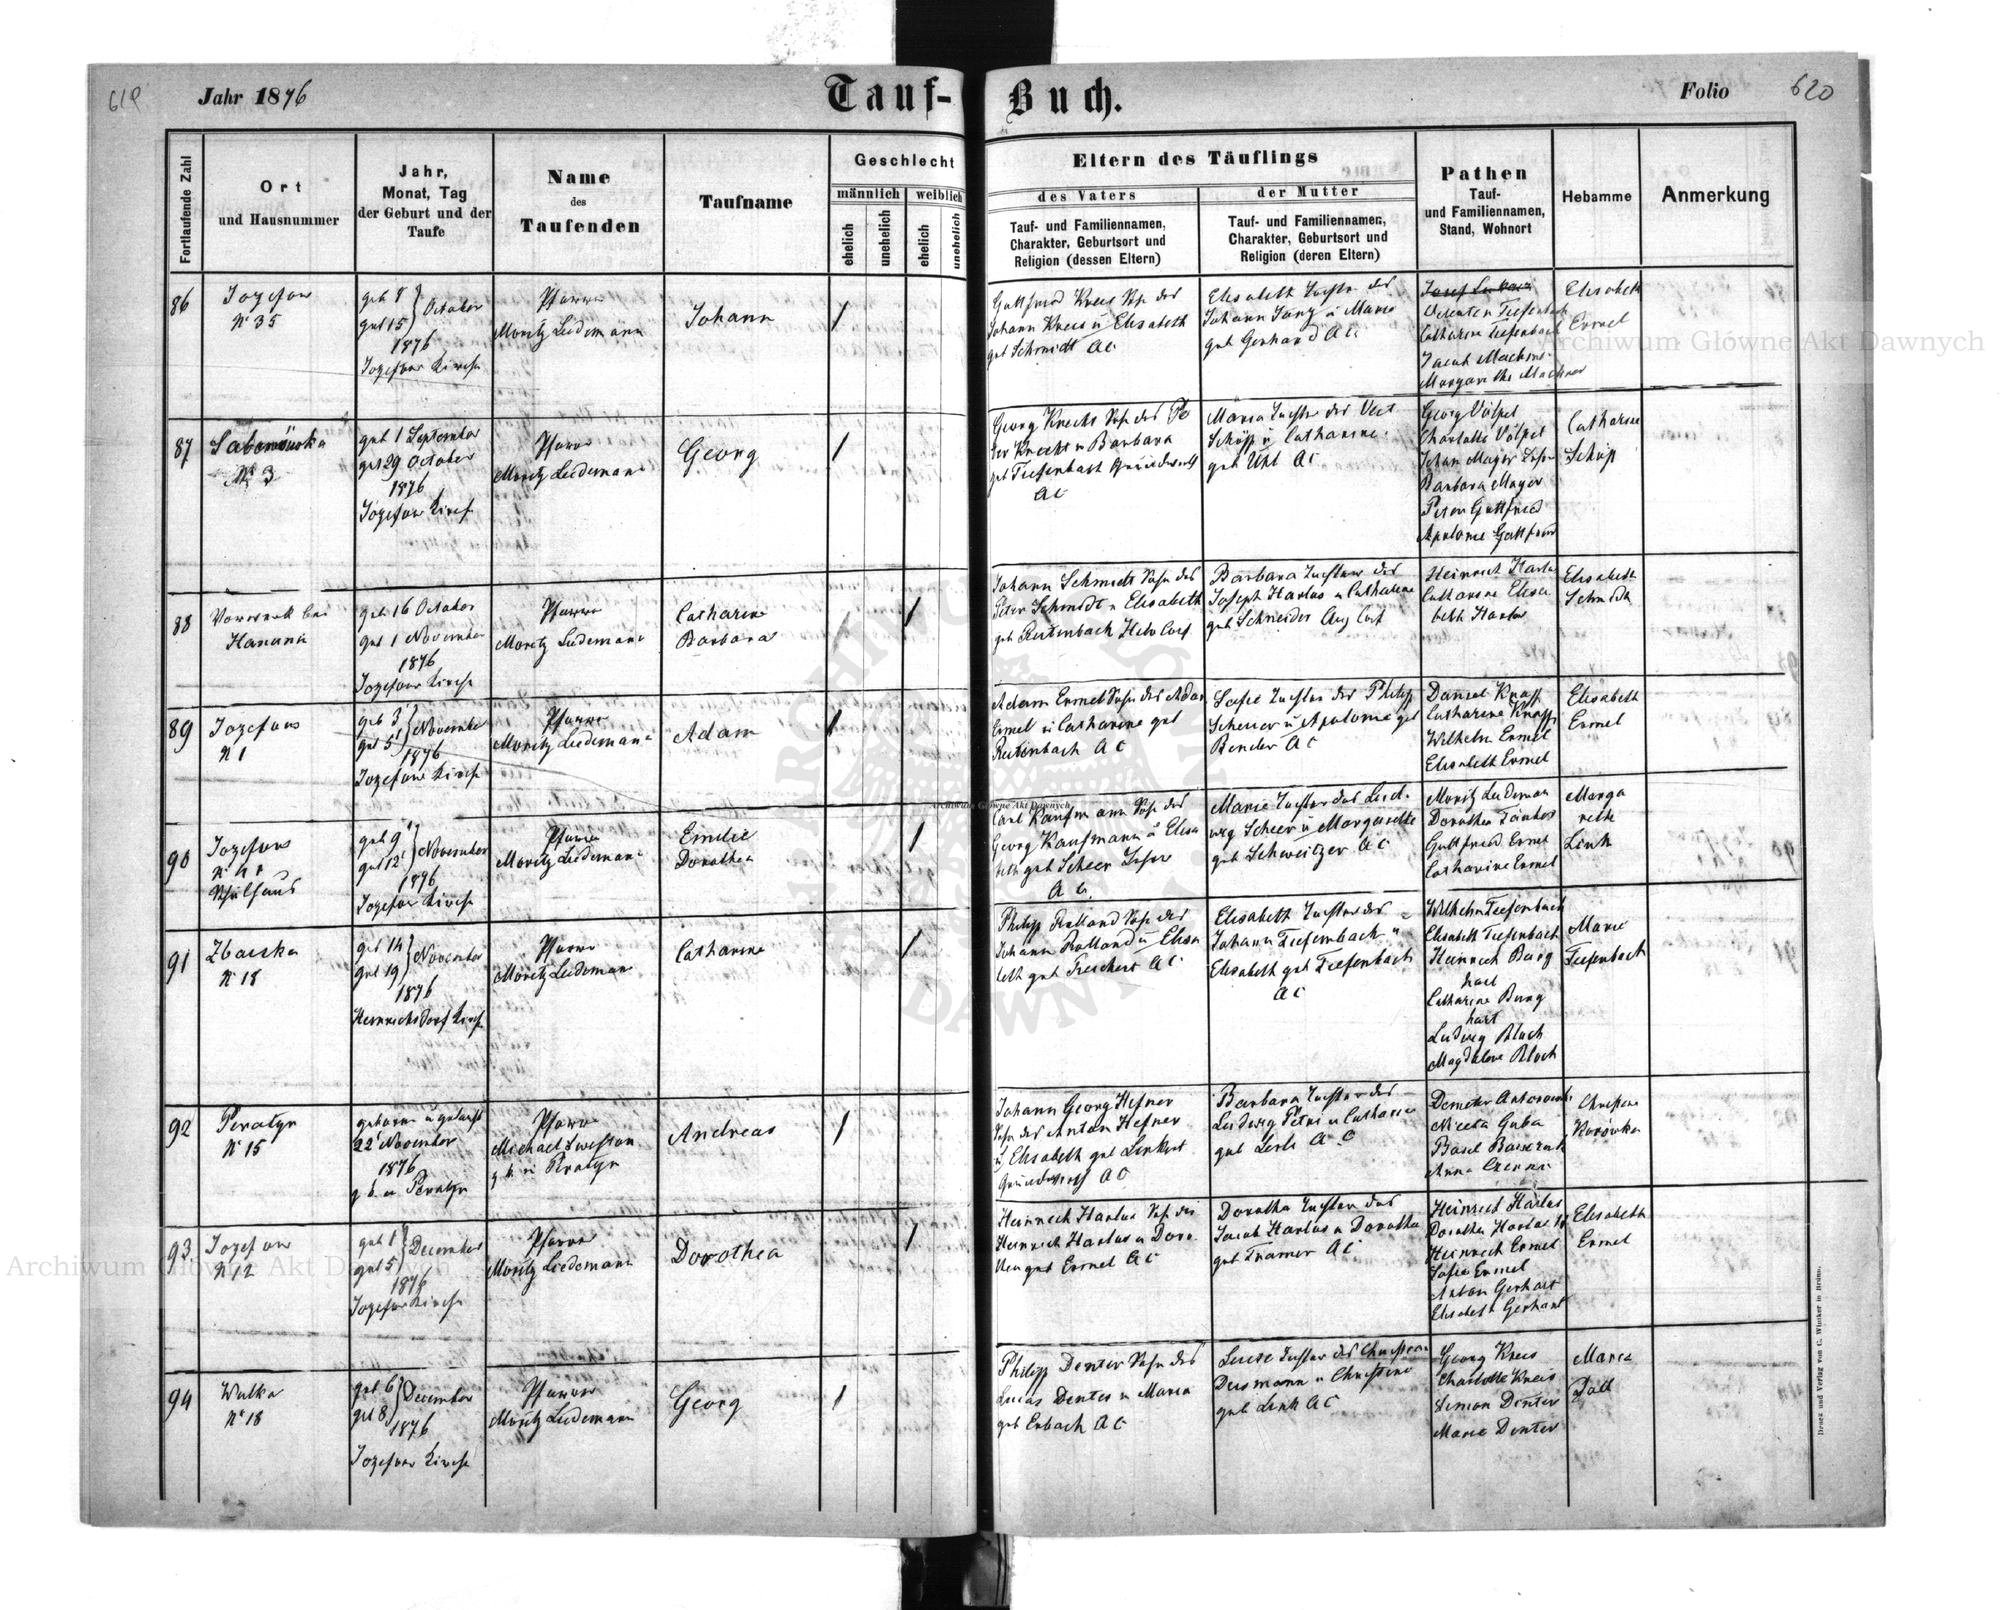 619
Jahr 1876
Tauf-
Buch.
Folio
620
Fortlaufende Zahl
Ort
und Hausnummer
Jahr,
Monat, Tag
der Geburt und der
Taufe
Name
des
Taufenden
Taufname
Geschlecht
männlich
weiblich
ehelich
unehelich
ehelich
unehelich
Eltern des Täuflings
des Vaters
Tauf- und Familiennamen,
Charakter, Geburtsort und
Religion (dessen Eltern)
der Mutter
Tauf- und Familiennamen,
Charakter, Geburtsort und
Religion (deren Eltern)
Pathen
Tauf-
und Familiennamen,
Stand, Wohnort
Hebamme
Anmerkung
86
Jozefow
N 35
geb 8
get 15
October
1876
Jozefow Kirche
Pfarrer
Moritz Ludemann
Johann
Gottfried Kreis Sohn des
Johann Kreis u Elisabeth
geb Schmidt AC
Elisabeth Tochter des
Johann Jung u Marie
geb Gerhard AC
Catharine Tiefenbach
Jacob Machmer
Margarethe Machmer
Elisabeth
Ermel
87
N 3
geb 1 September
get 29 October
1876
Jozefow Kirche
Pfarrer
Moritz Ludemann
Georg
Georg Knecht Sohn des Pe
ter Knecht u Barbara
geb Tiefenbach Grundwirth
AC
Maria Tochter des Veit
Schöp u Catharine
geb Uhl AC
Georg Völpel
Charlotte Völpel
Johan Mayer
Barbara Mayer
Peter Gottfried
Apolonie Gottfried
Catharine
Schöp
88
Vorwerk bei
Hanunin
geb 16 October
get 1 November
1876
Jozefow Kirche
Pfarrer
Moritz Ludemann
Catharine
Barbara
Johann Schmidt Sohn des
Peter Schmidt u Elisabeth
geb Reitenbach Helv Conf
Barbara Tochter des
Joseph Harlos u Catharine
geb Schneider Aug Conf
Heinrich Harlos
Catharine Elisa
beth Harlos
Elisabeth
Schmidt
89
Jozefow
N 1
geb 3
get 5
November
1876
Jozefow Kirche
Pfarrer
Moritz Ludemann
Adam
Adam Ermel Sohn des Adam
Ermel u Catharine geb
Reitenbach AC
Sofie Tochter des Philipp
Scheuer u Apolonie geb
Bender AC
Daniel Knapp
Catharine Knapp
Wilhelm Ermel
Elisabeth Ermel
Elisabeth
Ermel
90
Jozefow
Schulhaus
geb 9
get 12
November
1876
Jozefow Kirche
Pfarrer
Moritz Ludemann
Emilie
Dorothea
Carl Kaufmann Sohn des
Georg Kaufmann u Elisa
beth geb Scheer Lehrer
AC
Marie Tochter des Lud
wig Scheer u Margarethe
geb Schweitzer AC
Moritz Ludeman
Gottfried Ermel
Catharine Ermel
Marga
rethe
Link
91
N 18
geb 14
get 19
November
1876
Heinrichsdorf Kirche
Pfarrer
Moritz Ludeman
Catharine
Philipp Rolland Sohn des
Johann Rolland u Elisa
beth geb Treichert AC
Elisabeth Tochter des
Johann Tiefembach u
Elisabeth geb Tiefenbach
AC
Wilhelm Tiefenbach
Elisabeth Tiefenbach
Heinrich Burg
hart
Catharine Burg
hart
Ludwig Bloch
Magdalene Bloch
Marie
Tiefenbach
92
Peratyn
N 15
geboren u getauft
22 November
1876
Pfarrer
Andreas
Johann Georg Hefner
Sohn des Anton Hefner
u Elisabeth geb Linkert
Grundwirth AC
Barbara Tochter des
Ludwig Petri u Catharine
AC
Nicola Guba
Anna
Christine
93
Jozefow
N 12
geb 1
get 5
December
1876
Jozefow Kirche
Pfarrer
Moritz Ludemann
Dorothea
Heinrich Harlos Sohn des
Heinrich Harlos u Doro
thea geb Ermel AC
Dorothea Tochter des
Jacob Harlos u Dorothea
geb Tramer AC
Heinrich Harlos
Dorothea Harlos
Heinrich Ermel
Sofie Ermel
Anton Gerhart
Elisabeth Gerhart
Elisabeth
Ermel
94
Wulka
N 18
geb 6
get 8
December
1876
Jozefow Kirche
Pfarrer
Moritz Ludemann
Georg
Philipp Denter Sohn des
Lucas Denter u Maria
geb Erbach AC
Luise Tochter des Christian
Deismann u Christine
geb Link AC
Georg Kreis
Charlotte Kreis
Simon Denter
Marie Denter
Maria
Doll
Druck und Verlag von C. Winiker in Brünn.
Archiwum Główne Akt Dawnych
Archiwum Główne Akt Dawnych
Archiwum Główne Akt Dawnych